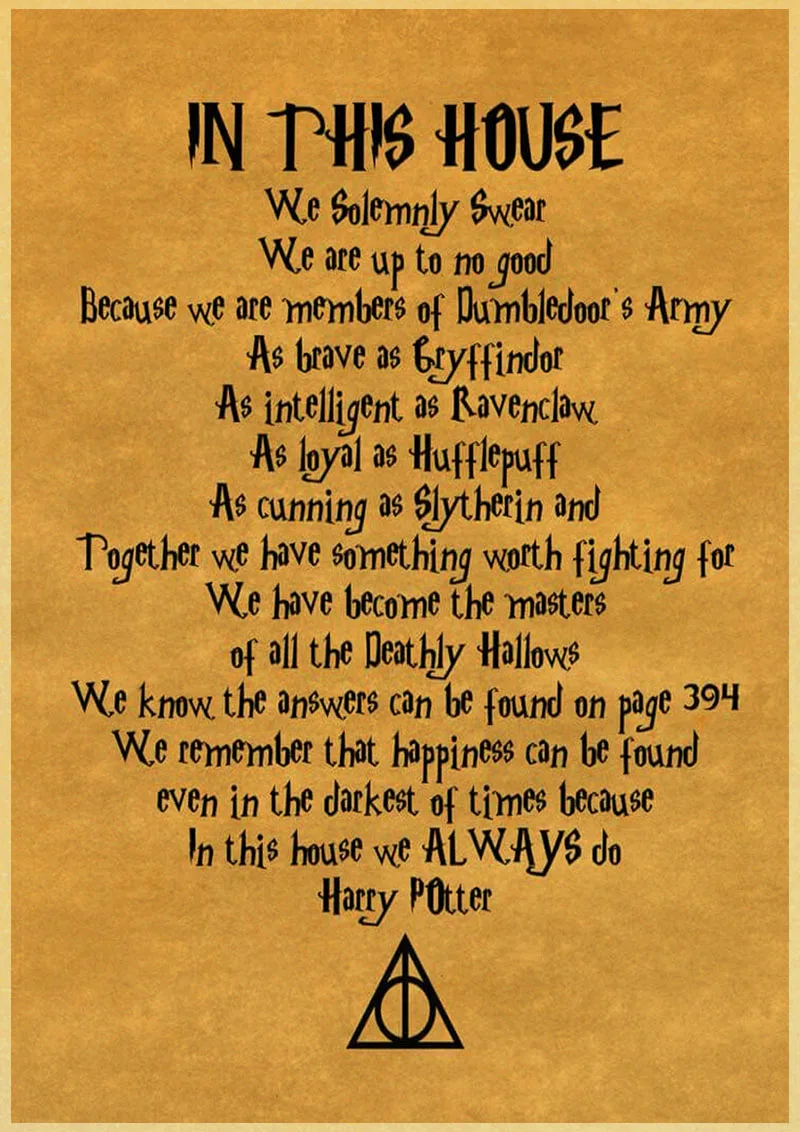 IN THIS HOUSE
We Solemnly Swear
We are up to no good
Because we are members of Dumbledoor's Army
As brave as Gryffindor
As intelligent as Ravenclaw
As loyal as Hufflepuff
As cunning as Slytherin and
Together we have something worth fighting for
We have become the masters
of all the Deathly Hallows
We know the answers can be found on page 394
We remember that happiness can be found
even in the darkest of times because
In this house we ALWAYS do
Harry POtter